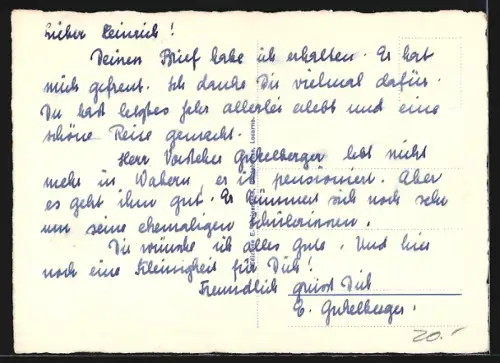 Lieber Heinrich!
Deinen Brief habe ich erhalten. Er hat
mich gefreut. Ich danke Dir vielmal dafür.
Du hast letztes Jahr allerlei erlebt und eine
schöne Reise gemacht.
Herr Vorsteher Gukelberger lebt nicht
mehr in Wabern, er ist pensioniert. Aber
es geht ihm gut. Er kümmert sich noch sehr
um seine ehemaligen Schülerinnen.
Dir wünsche ich alles Gute. Und hier
noch eine Kleinigkeit für Dich!
Freundlich grüsst Dich
E. Gukelberger.
20.-